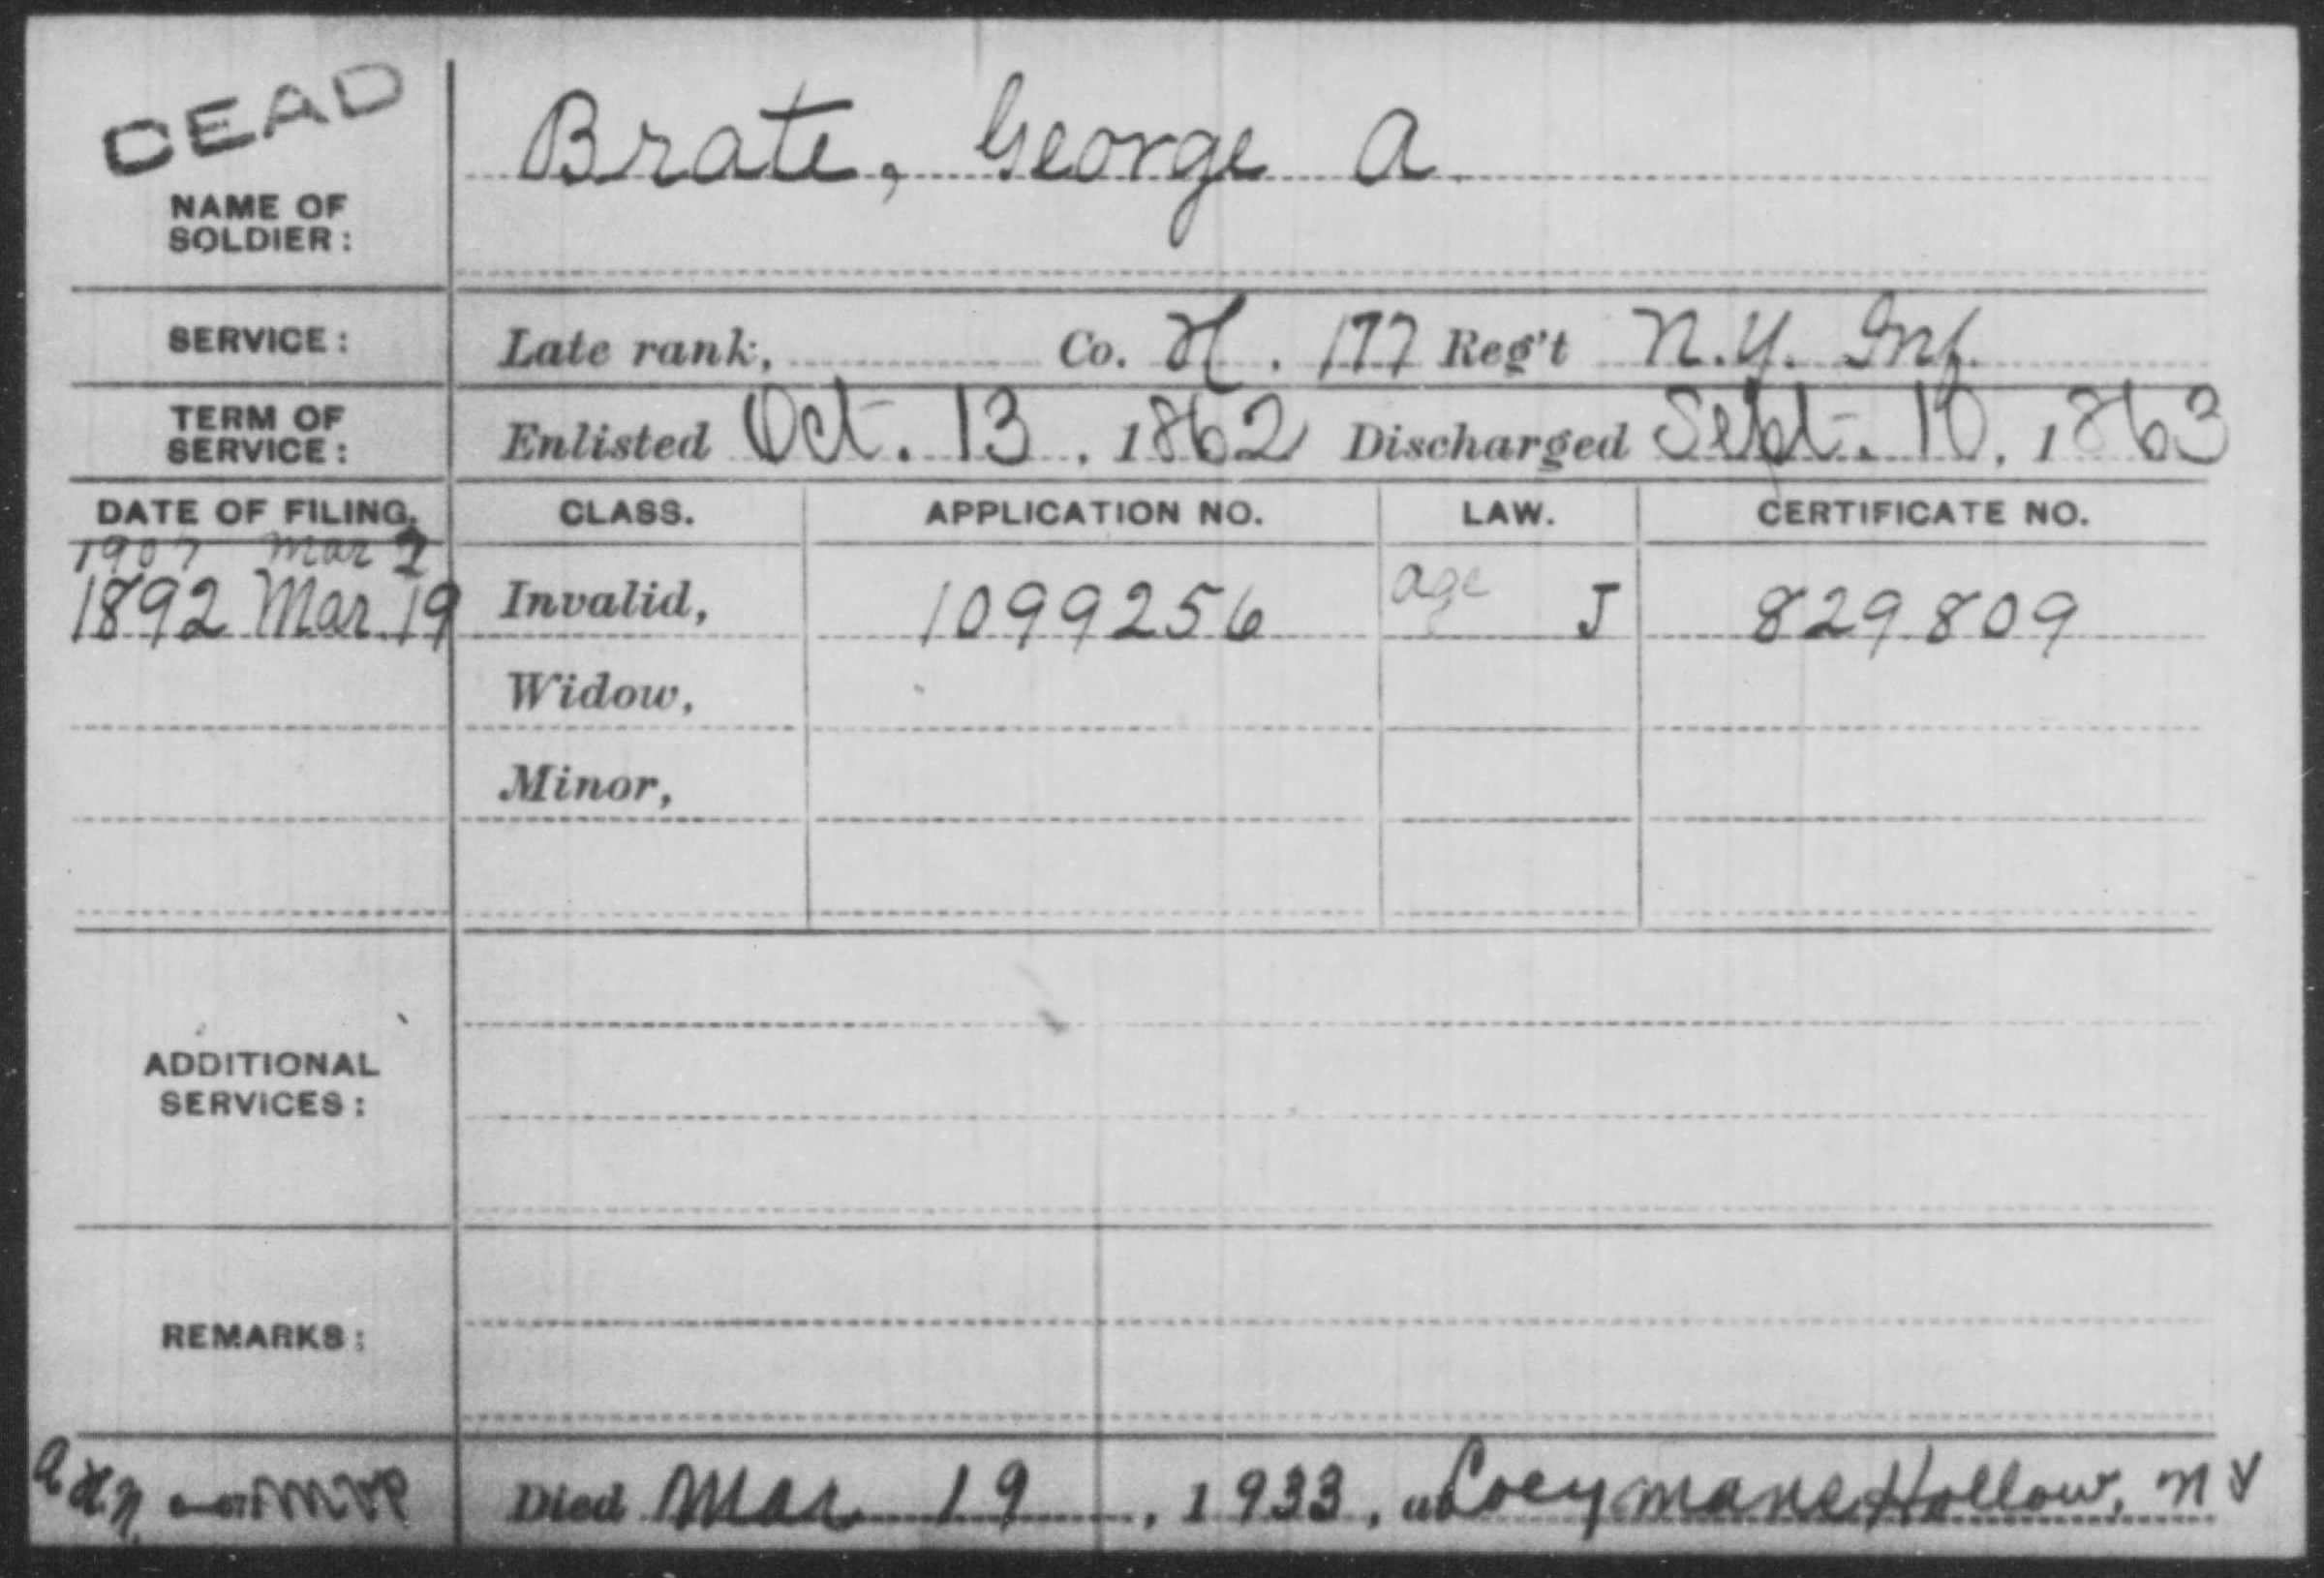 DEAD
Brate, George A.
NAME OF
SOLDIER:
SERVICE: Late rank, Co. H. 177 Reg't N.Y. Inf.
TERM OF
SERVICE: Enlisted Oct. 13, 1862 Discharged Sept. 10, 1863
DATE OF FILING. CLASS. APPLICATION NO. LAW. CERTIFICATE NO.
1907 Mar 2
1892 Mar 19 Invalid, 1099256 age J 829809
Widow,
Minor,
ADDITIONAL
SERVICES:
REMARKS:
Died Mar 19, 1933, at Coeymans Hollow, N Y